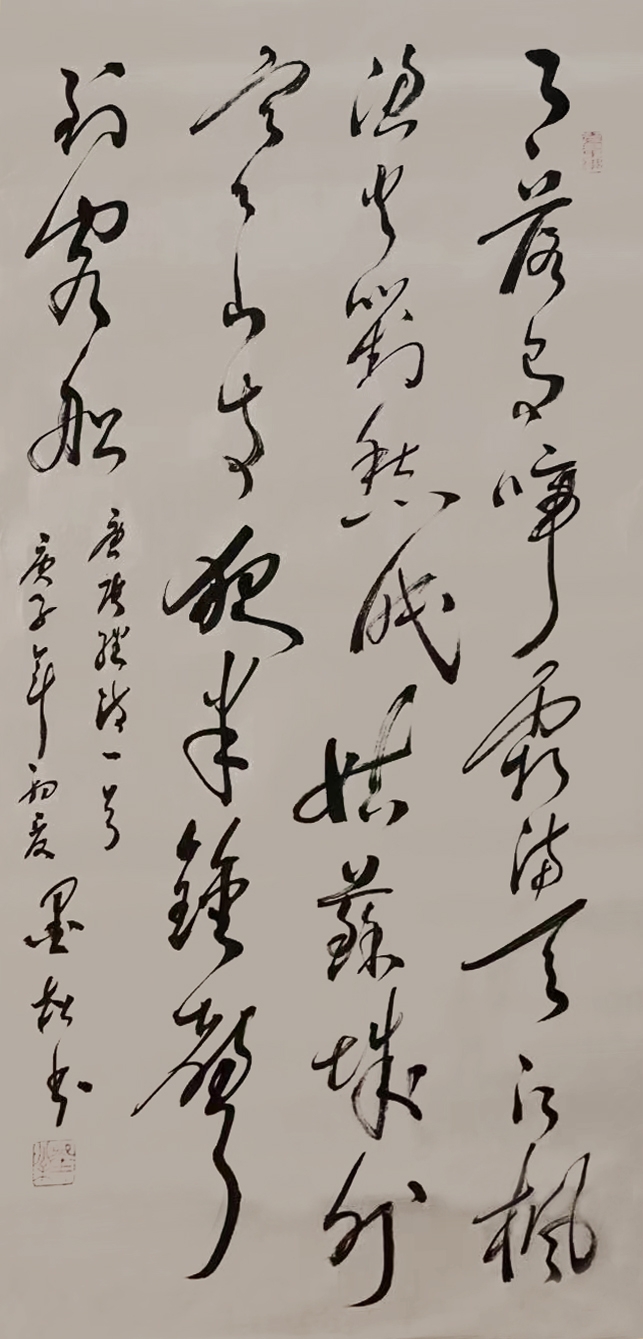 月落烏啼霜滿天江楓
漁火對愁眠姑蘇城外
寒山寺夜半鐘聲
到客船
唐張繼詩一首
庚子年初夏墨書